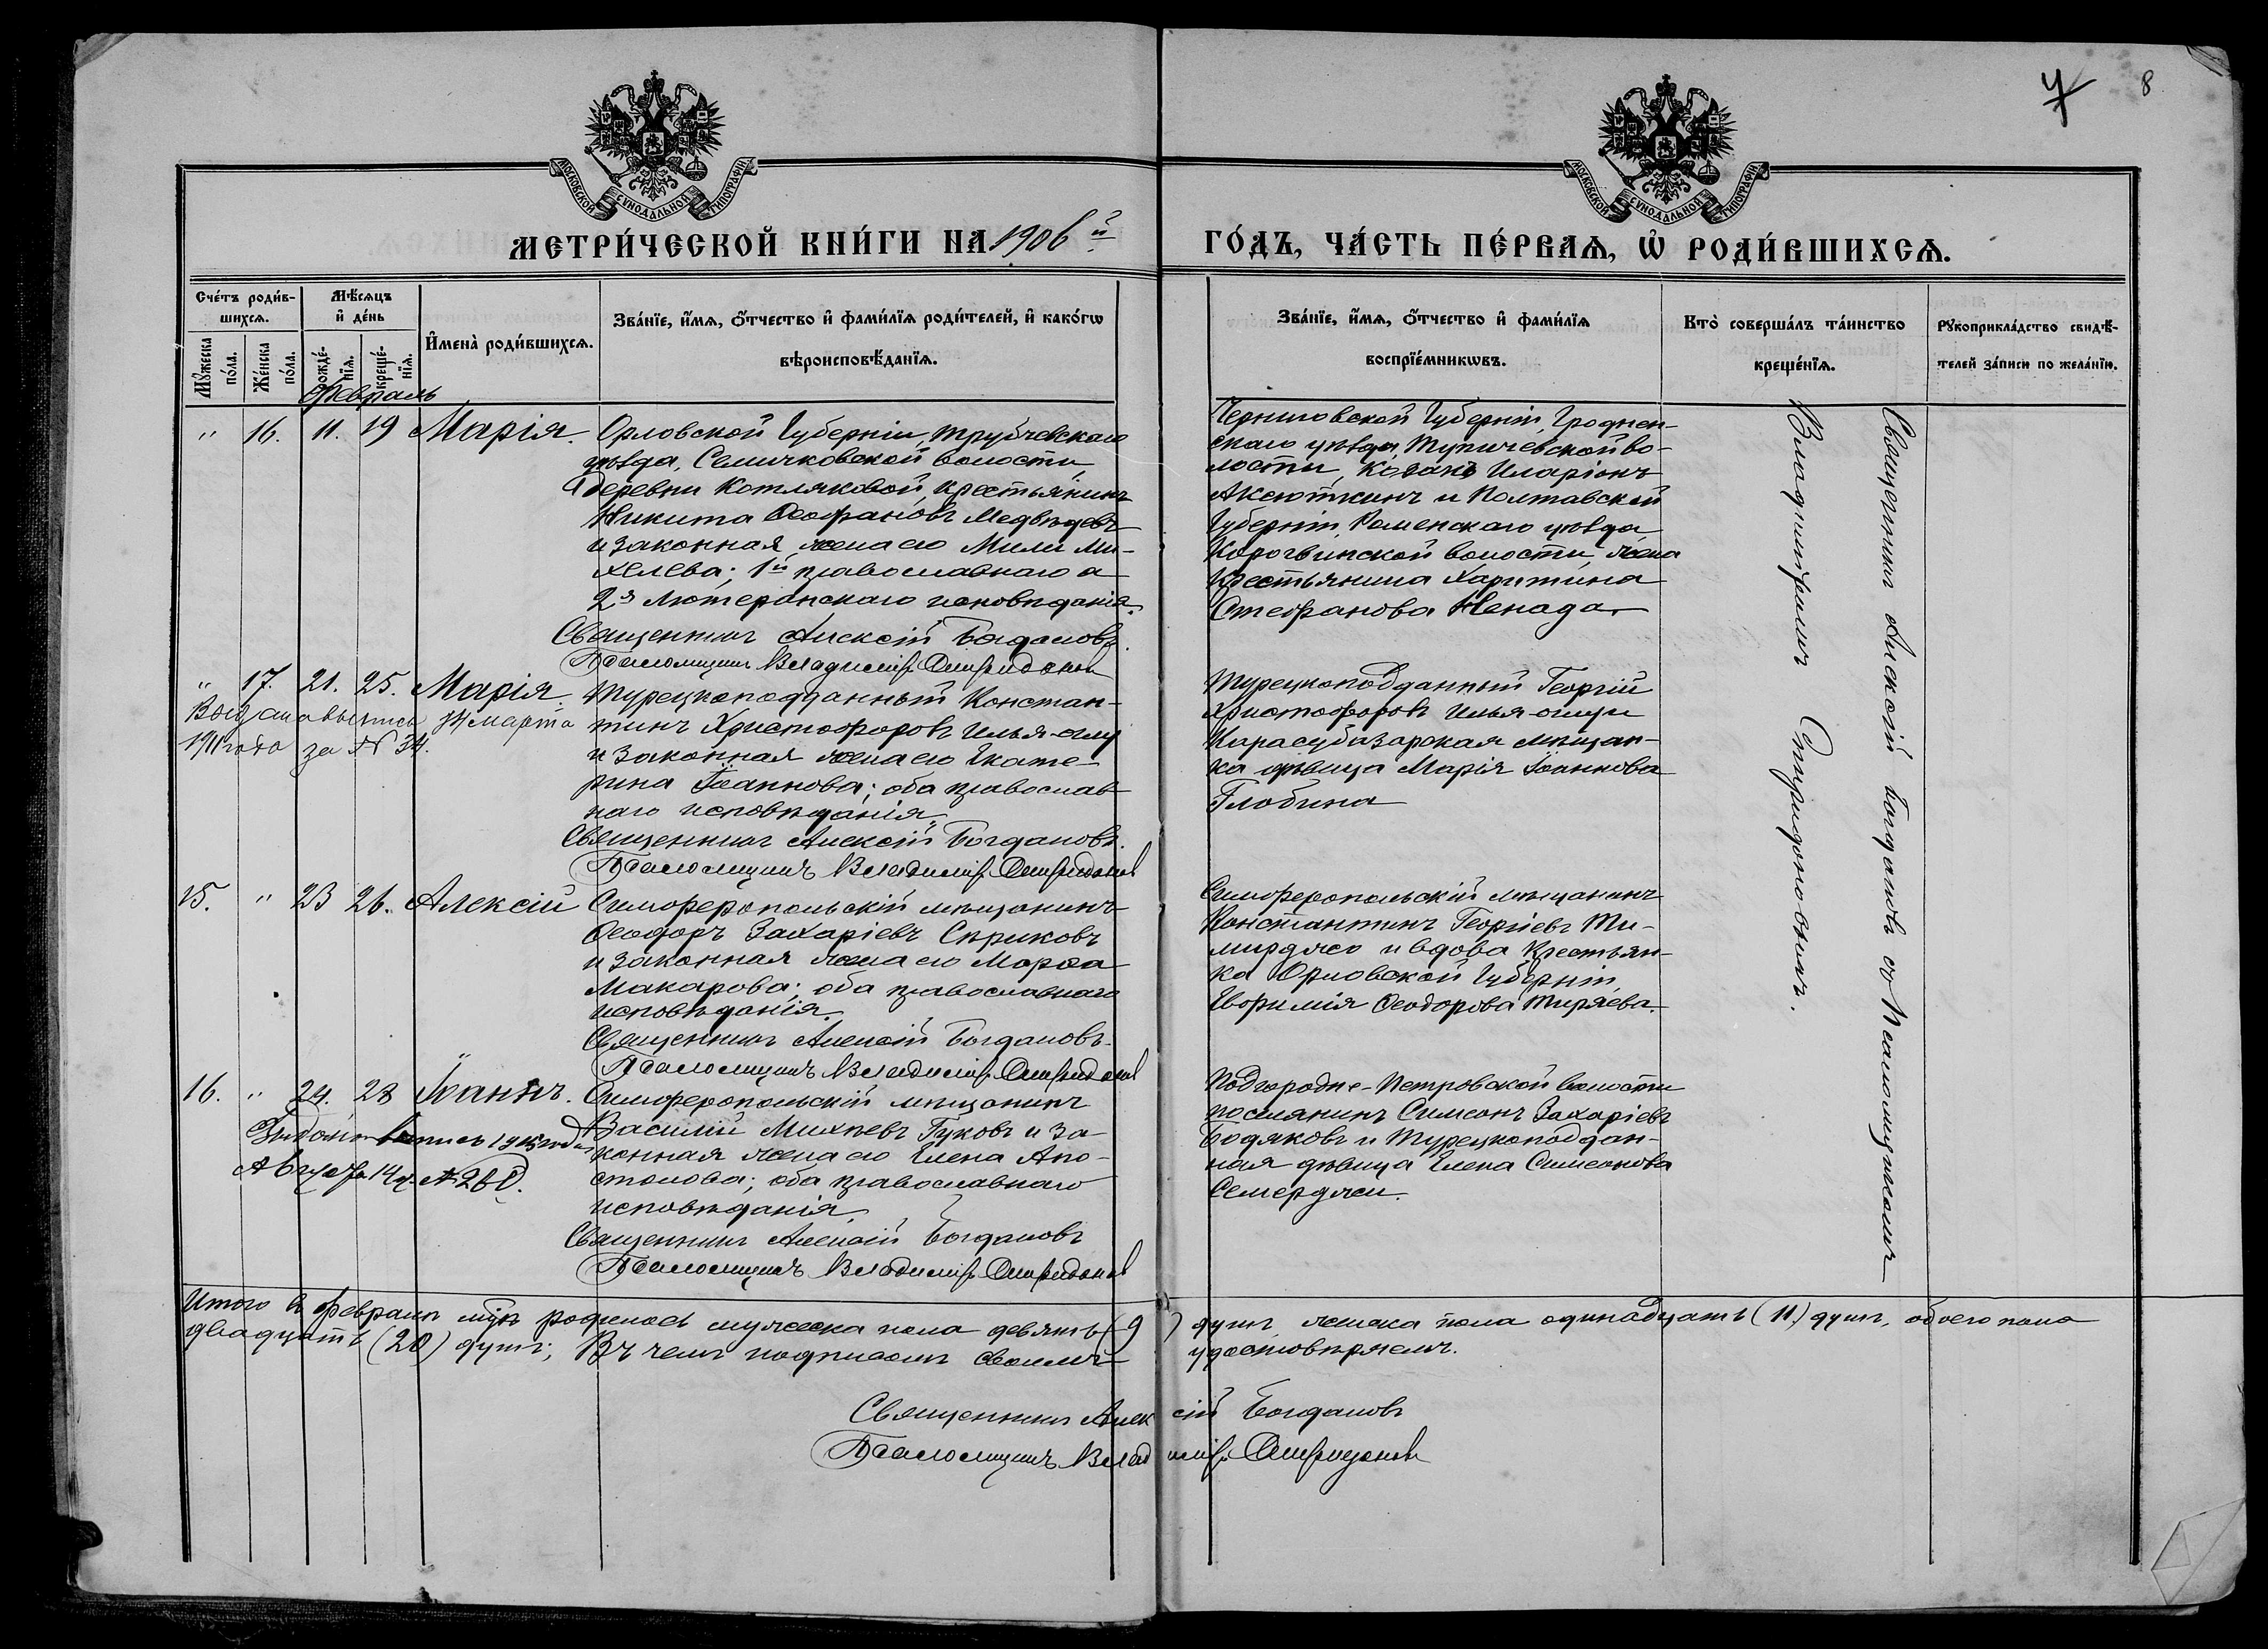 7 8
МОСКОВСКОЙ СѴНОДАЛЬНОЙ ТИПОГРАФІИ
МОСКОВСКОЙ СѴНОДАЛЬНОЙ ТИПОГРАФІИ
МЕТРИ́ЧЕСКОЙ КНИ́ГИ НА 1906й
ГО́ДЪ, ЧА́СТЬ ПЕ́РВАѦ, Ѡ҆ РОДИ́ВШИХСѦ.
Сче́тъ роди́в-
шихсѧ.
Мѣ́сѧцъ
и҆ де́нь
Мꙋ́жеска по́ла.
Же́нска по́ла.
рожде́-
нїѧ.
креще́-
нїѧ.
И҆мена̀ роди́вшихсѧ.
Зва́нїе, и҆́мѧ, ѻ҆́тчество и҆ фами́лїѧ роди́телей, и҆ како́гѡ
вѣроисповѣ́данїѧ.
Зва́нїе, и҆́мѧ, ѻ҆́тчество и҆ фами́лїѧ
воспрїе́мникѡвъ.
Кто̀ соверша́лъ та́инство
креще́нїѧ.
Рꙋкоприкла́дство свидѣ́-
телей за́писи по жела́нїю.
Февраль
" 16. 11. 19 Марія.
Орловской Губерніи, Трубчевскаго
уѣзда, Семичковской волости,
деревни Котляковой, крестьянинъ
Никита Ѳеофановъ Медвѣдевъ
и законная жена его Мили Ми-
хелева; 1й православнаго а
2я Лютеранскаго исповѣданія.
Священникъ Алексій Богдановъ.
Псаломщикъ Владиміръ Спиридонов
Черниговской Губерніи, Гроднен-
скаго уѣзда, Тупичевской во-
лости, Козакъ Иларіонъ
Аксюткинъ и Полтавской
Губерніи, Роменскаго уѣзда,
Коровинской волости, жена
крестьянина Харитина
Стефанова Ненада.
" 17. 21. 25. Марія.
Выдана выпись 14 марта
1911 года за № 34.
Турецкоподданный Констан-
тинъ Христофоровъ Илья-оглу
и законная жена его Екате-
рина Іоаннова; оба православ
наго исповѣданія.
Священникъ Алексій Богдановъ.
Псаломщикъ Владиміръ Спиридонов
Турецкоподданный Георгій
Христофоровъ Илья-оглу и
Карасубазарская мѣщан-
ка дѣвица Марія Іоаннова
Глобина
15. " 23 26. Алексій
Симферопольскій мѣщанинъ
Ѳеодоръ Захаріевъ Сѣриковъ
и законная жена его Марѳа
Макарова; оба православнаго
исповѣданія.
Священникъ Алексій Богдановъ.
Псаломщикъ Владиміръ Спиридонов
Симферопольскій мѣщанинъ
Константинъ Георгіевъ Ти-
мирджо и вдова крестьян-
ка Орловской Губерніи,
Евфимія Ѳеодорова Тиряева.
16. " 24. 28 Іоаннъ.
выпись
Августа 14 д. № 260.
Симферопольскій мѣщанинъ
Василій Михѣевъ Гуковъ и за-
конная жена его Елена Апо-
столова; оба православнаго
исповѣданія.
Священникъ Алексій Богдановъ
Псаломщикъ Владиміръ Спиридонов
Подгородне-Петровской волости
поселянинъ Симеонъ Захаріевъ
Бодяковъ и Турецкоподдан-
ная дѣвица Елена Симеонова
Семерджи.
Священникъ Алексій Богдановъ съ Псаломщикомъ
Владиміромъ Спиридоновымъ.
Итого въ февралѣ м-цѣ родилось мужеска пола девять (9) душъ, женска пола одинадцать (11) душъ, обоего пола
двадцать (20) душъ; Въ чемъ подписомъ своимъ удостовѣряемъ.
Священникъ Алексій Богдановъ
Псаломщикъ Владиміръ Спиридонов